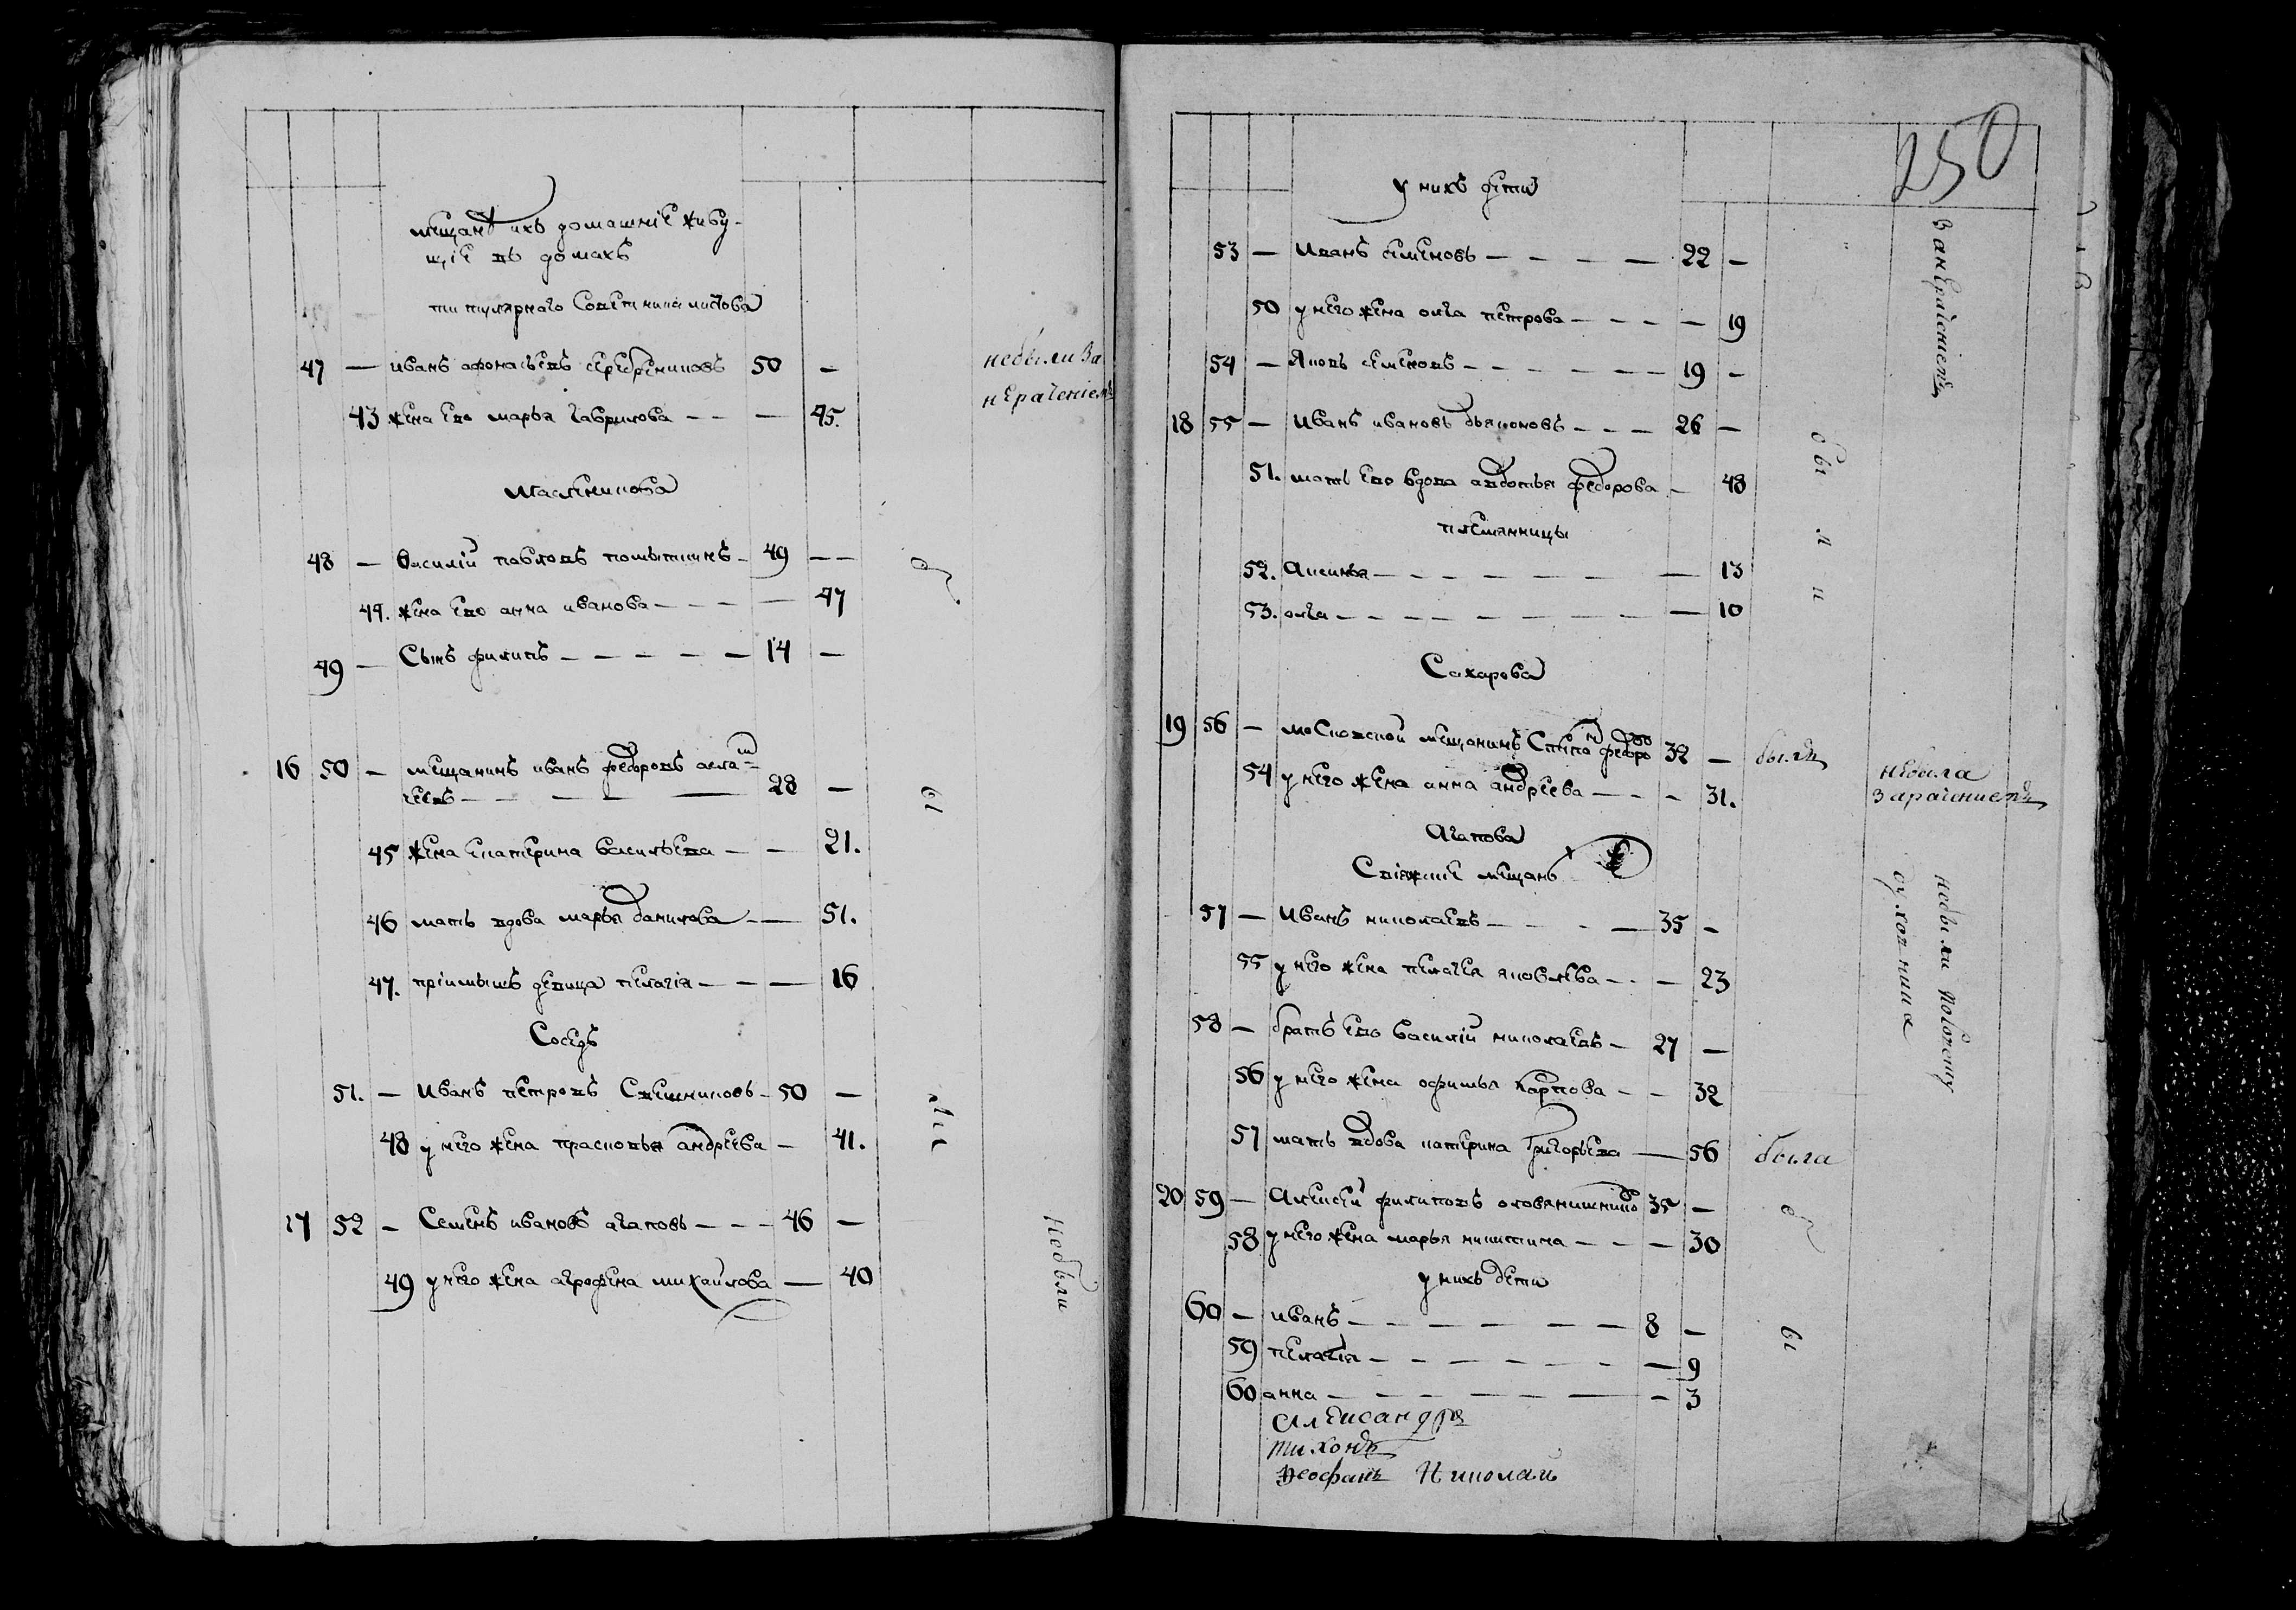 мещанъ ихъ домашніе живу-
щіе въ домахъ
титулярнаго Советника
47 — иванъ афонасьевъ серебрениковъ 50 —
43 жена ево марья гаврилова — — — 45.
небыли за
нерачениемъ
Масленикова
48 — Василий павловъ 49 — —
44. жена ево анна иванова — — — — 47
49 — Сынъ филипъ — — — — — 14 —
16 50 — мещанинъ иванъ федоровъ
28 —
45 жена екатерина васильева — — 21.
46 мать вдова марья данилова — — 51.
47. пріимышъ девица пелагія — — — 16
Соседъ
51. — Иванъ петровъ Свешниковъ — 50 —
48 у него жена прасковья андреева — 41.
17 52 — Семенъ ивановъ агаповъ — — — 46 —
49 у него жена агрофена михайлова — 40
были
небыли
250
у нихъ дети
53 — Иванъ семеновъ — — — — 22 —
50 у него жена олга петрова — — — — 19
54 — Яковъ семеновъ — — — — — — 19 —
за нерачениемъ
18 55 — Иванъ ивановъ дьяконовъ — — — 26 —
51. мать ево вдова авдотья федорова — 48
племянницы
52. Аксинья — — — — — — — 13
53. олга — — — — — — — — — 10
были
Сахарова
19 56 — московской мещанинъ Степанъ федоро 32 — былъ
54 у него жена анна андреева — — — 31.
небыла
за рачениемъ
Агапова
мещанъ
57 — Иванъ николаевъ — — — — 35 —
55 у него жена пелагея яковлева — — — 23
58 — братъ ево василий николаевъ — 27 —
56 у него жена офимья карпова — — 32
небыли
57 мать вдова катерина григорьева — 56 была
20 59 — Алексей филиповъ оловянишнико 35 —
58 у него жена марья никитина — — — 30
у нихъ дети
60 — иванъ — — — — — — 8 —
59 пелагія — — — — — — — 9
60 анна — — — — — — 3
Александра
тихонъ
феофанъ Николай